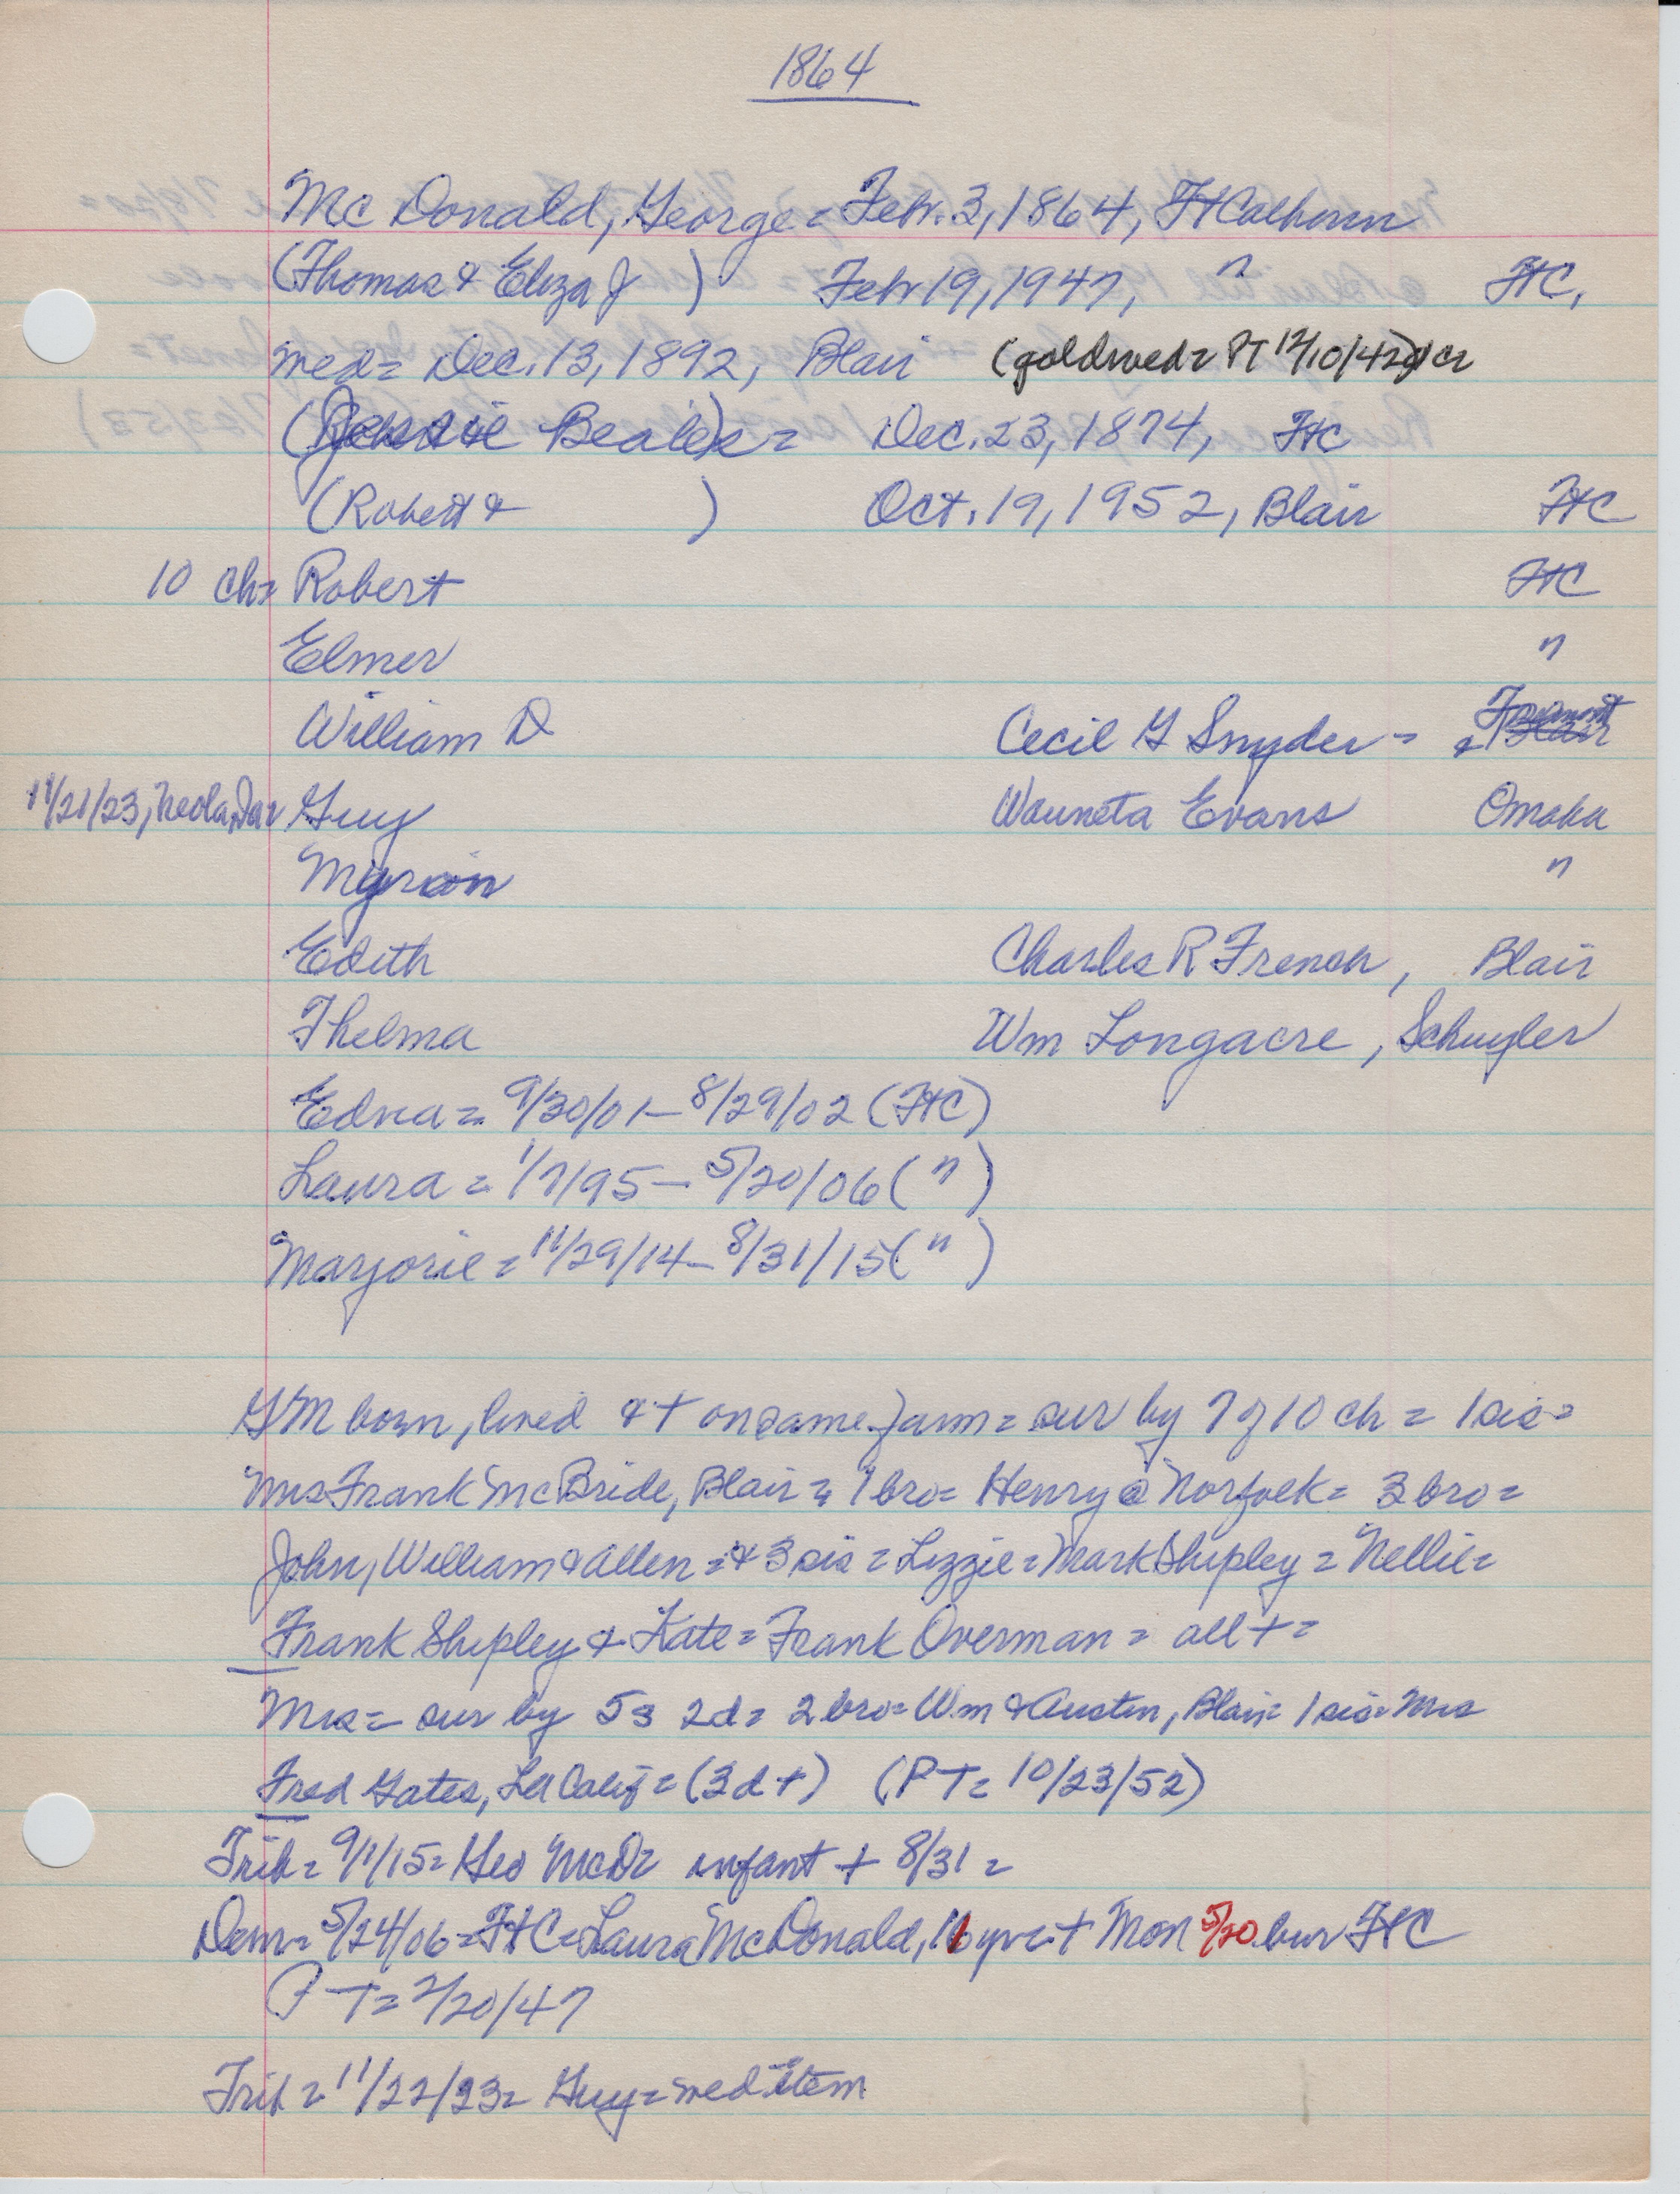 1864
McDonald, George = Febr. 3, 1864, Ft Calhoun
(Thomas & Eliza J ) Febr 19, 1947, " FtC,
wed = Dec. 13, 1892, Blair (goldwed = PT 12/10/42
( Beales = Dec. 23, 1874, FtC
(Robert & ) Oct. 19, 1952, Blair FtC
10 ch = Robert FtC
Elmer "
William D Cecil G Snyder = Fremont
11/21/23, Neola, Ia = Guy Wauneta Evans Omaha
Myron "
Edith Charles R French, Blair
Thelma Wm Longacre, Schuyler
Edna = 9/30/01 - 8/29/02 (FtC)
Laura = 1/7/95 - 5/20/06 ( " )
Marjorie = 11/29/14 - 8/31/15 ( " )
GM born, lived & + on same farm = sur by 7 of 10 ch = 1 sis =
Mrs Frank McBride, Blair = 1 bro = Henry @ Norfolk = 3 bro =
John, William & Allen = & 3 sis = Lizzie = Mark Shipley = Nellie =
Frank Shipley & Kate = Frank Overman = all + =
Mrs = sur by 5s 2d = 2 bro = Wm & Austin, Blair = 1 sis = Mrs
Fred Gates, LA Calif = (3d +) (PT = 10/23/52)
Trib = 9/1/15 = Geo McD = infant + 8/31 =
Dem = 5/24/06 = FtC = Laura McDonald, 11 yrs = + Mon 5/20 bur FtC
PT = 2/20/47
Trib = 11/22/23 = Guy = wed item